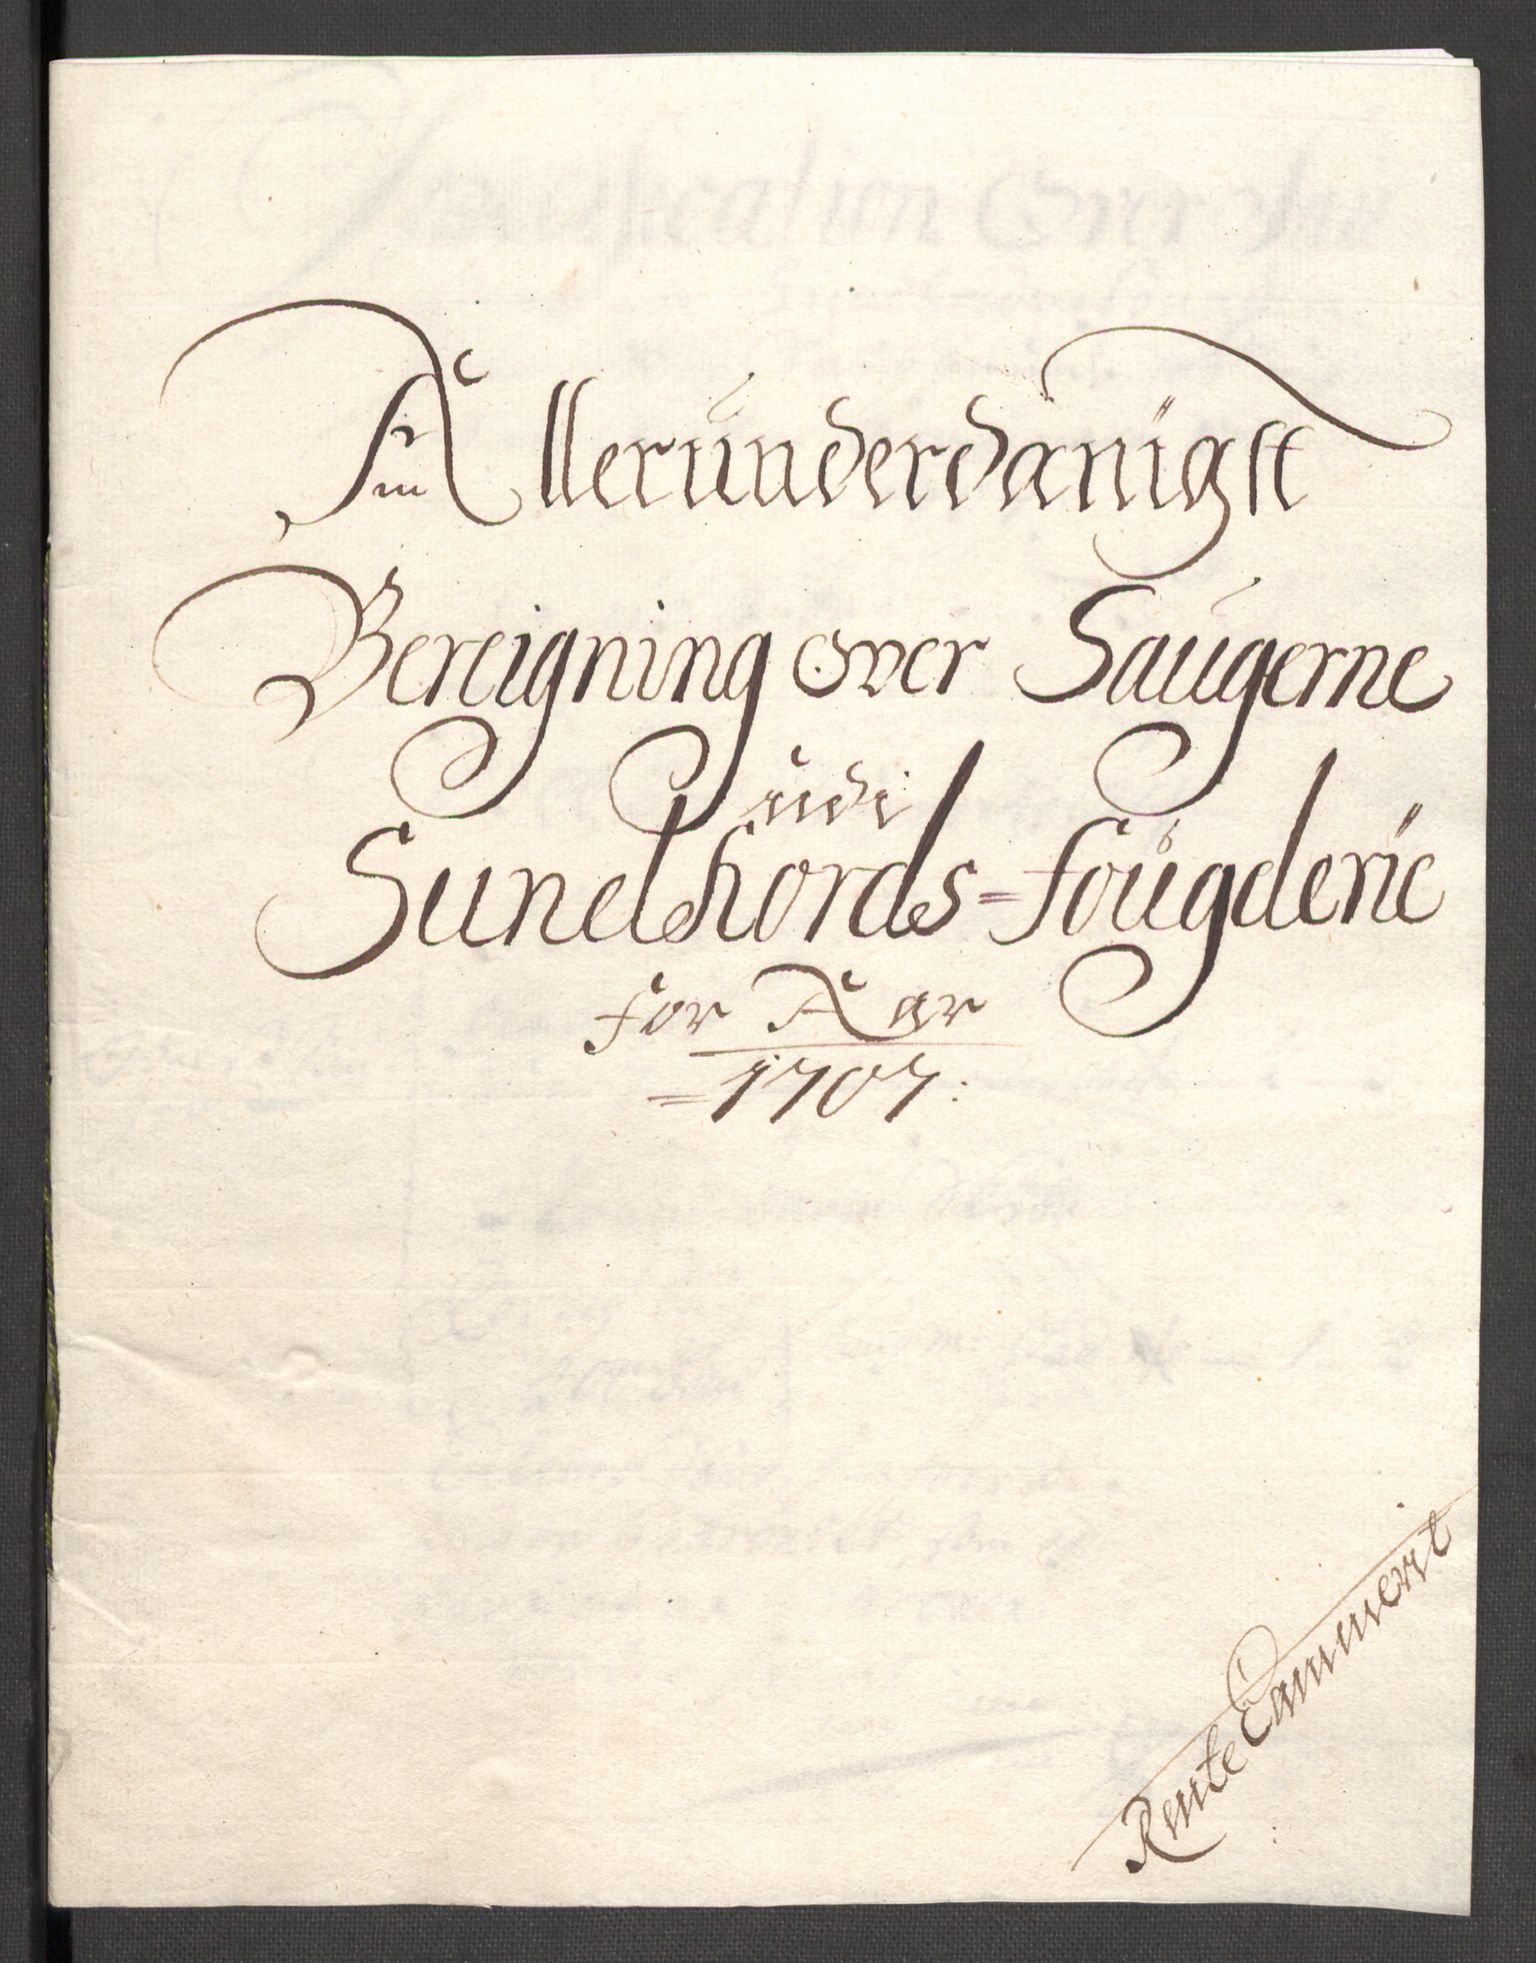 Allerunderdanigst
Bereigning over Saugerne
udi
Sundhords=fougderie
for Aar
=1707:
RenteCammert